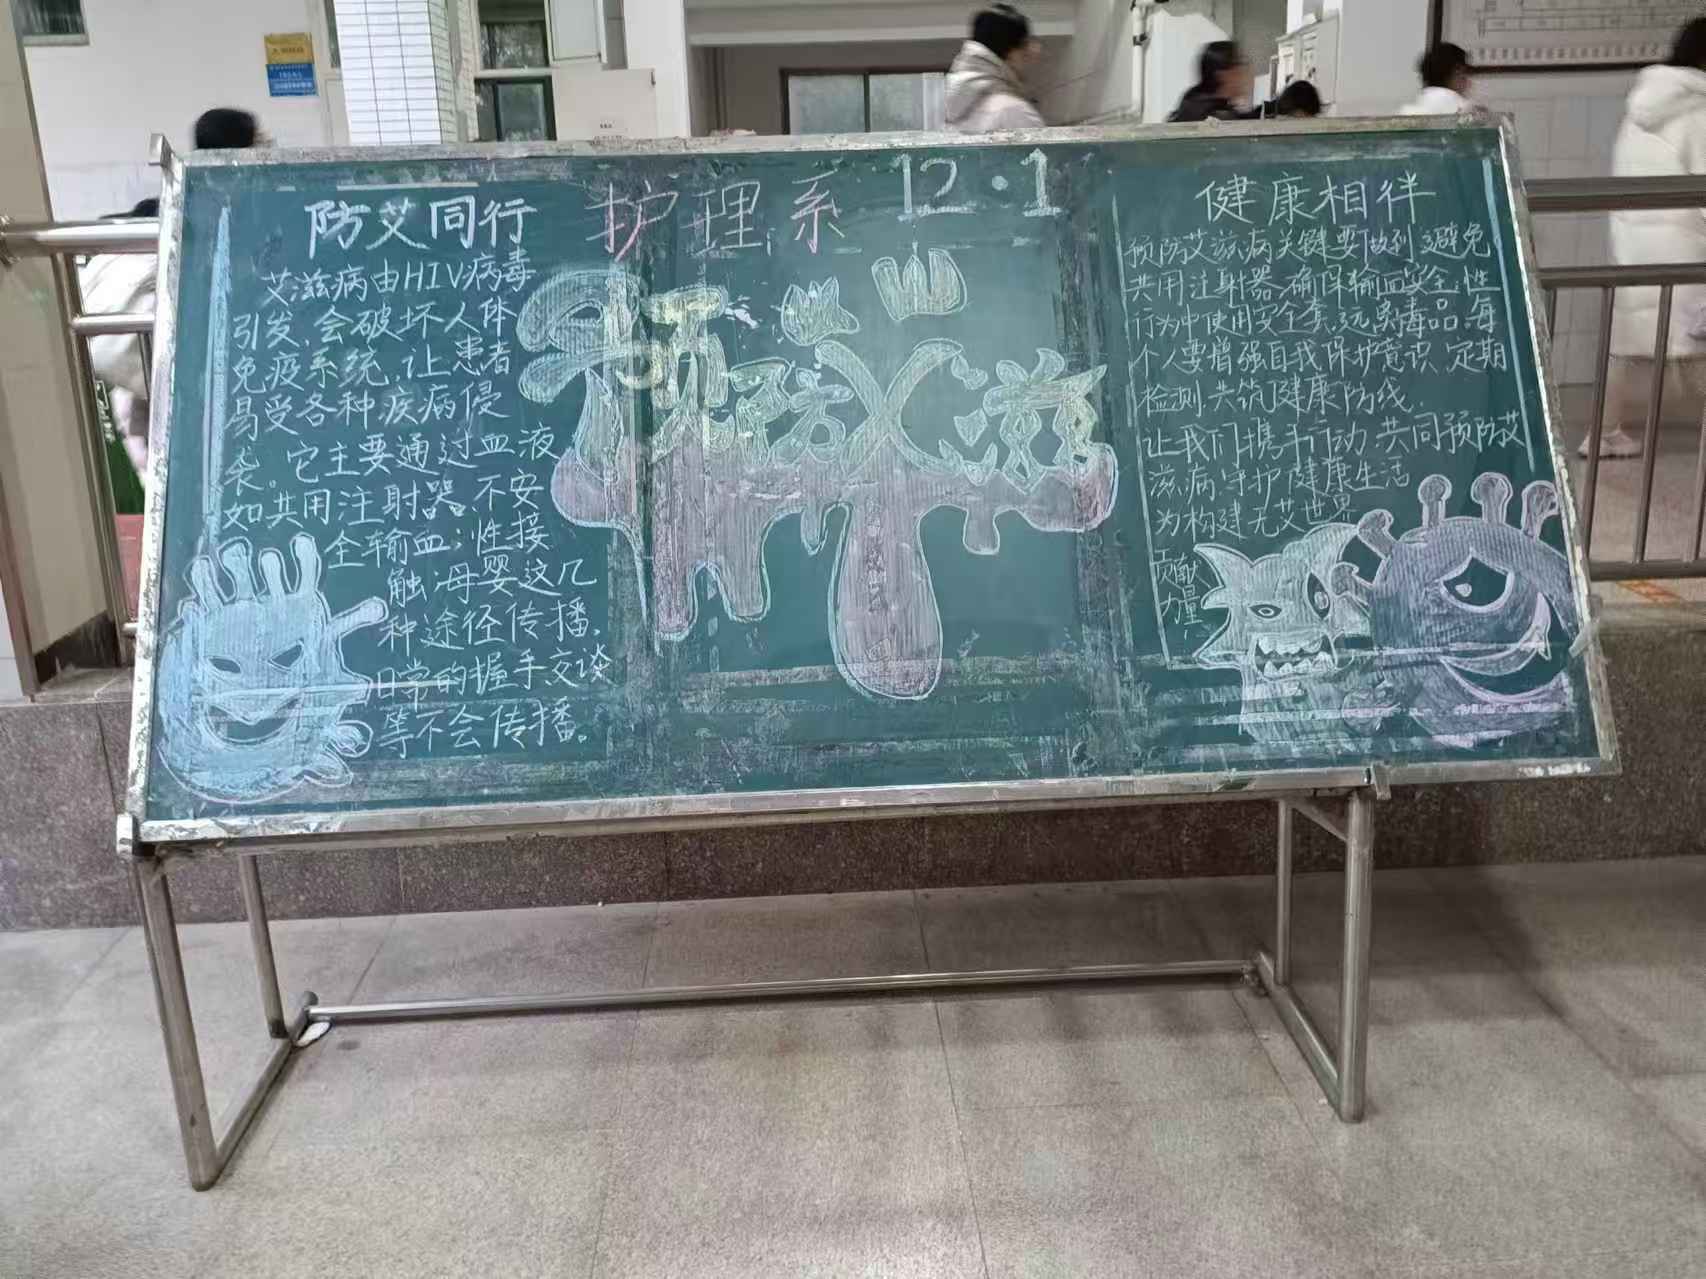 护理系 12·1
防艾同行
艾滋病由HIV病毒
引发,会破坏人体
免疫系统,让患者
易受各种疾病侵
袭。它主要通过血液
如共用注射器、不安
全输血;性接
触;母婴这几
种途径传播,
日常的握手交谈
等不会传播。
预防艾滋
健康相伴
预防艾滋病关键要做到避免
共用注射器,确保输血安全,性
行为中使用安全套,远离毒品,每
个人要增强自我保护意识,定期
检测,共筑健康防线。
让我们携手行动,共同预防艾
滋病,守护健康生活
为构建无艾世界
贡献
力量!